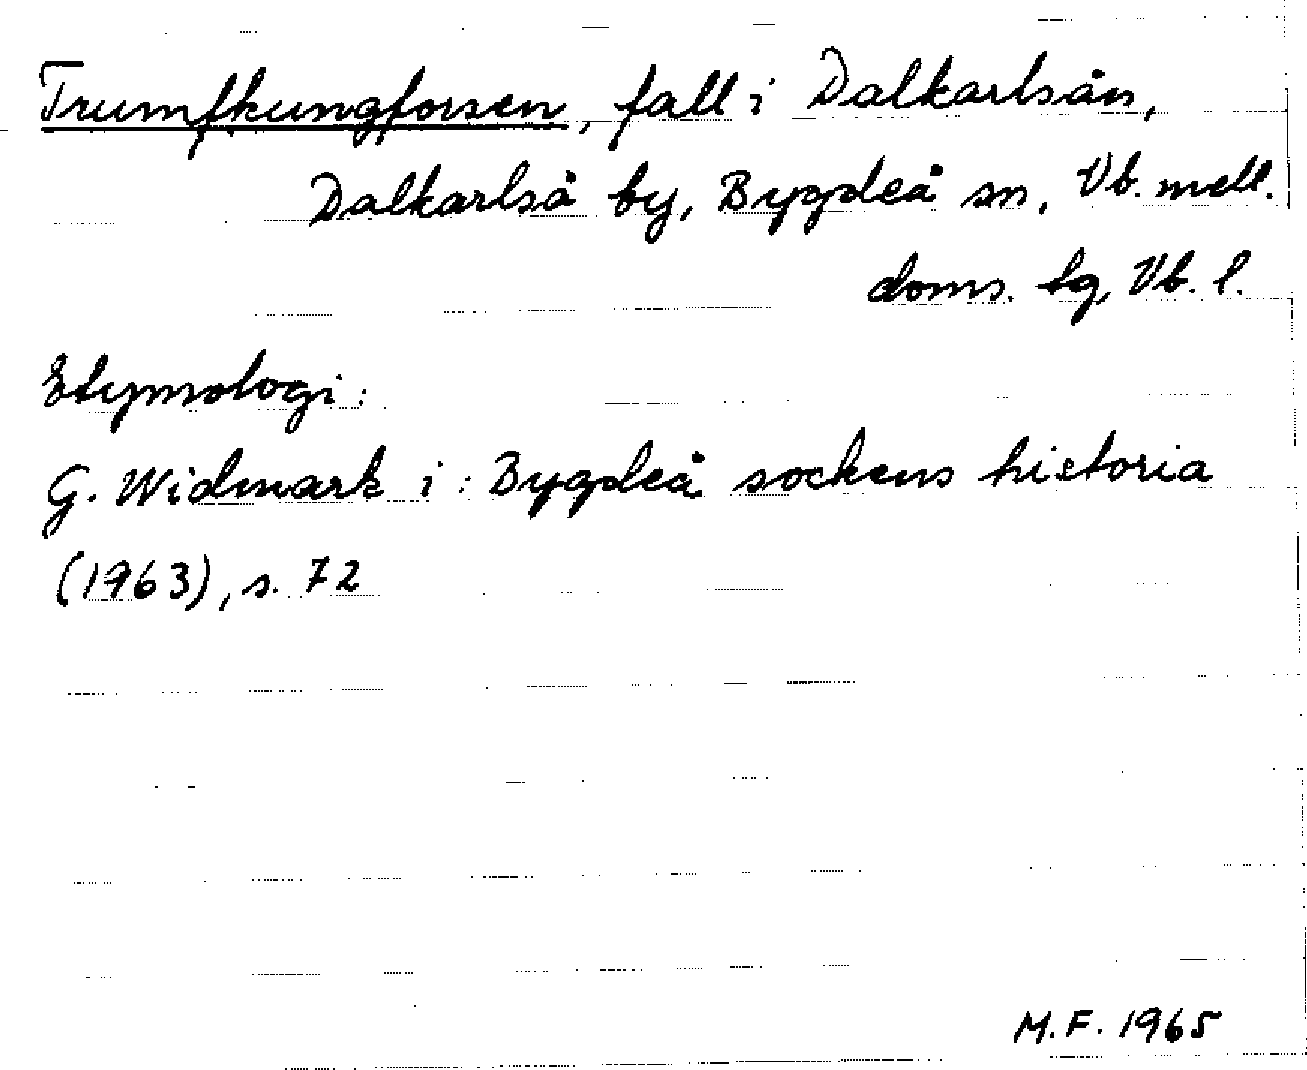 Trumfkungforsen, fall i Dalkarlsån,
Dalkarlså by, Bygdeå sn, Vb. mell.
doms. tg, Vb. l.
Etymologi:
G. Widmark i: Bygdeå sockens historia
(1963), s. 72
M.F. 1965